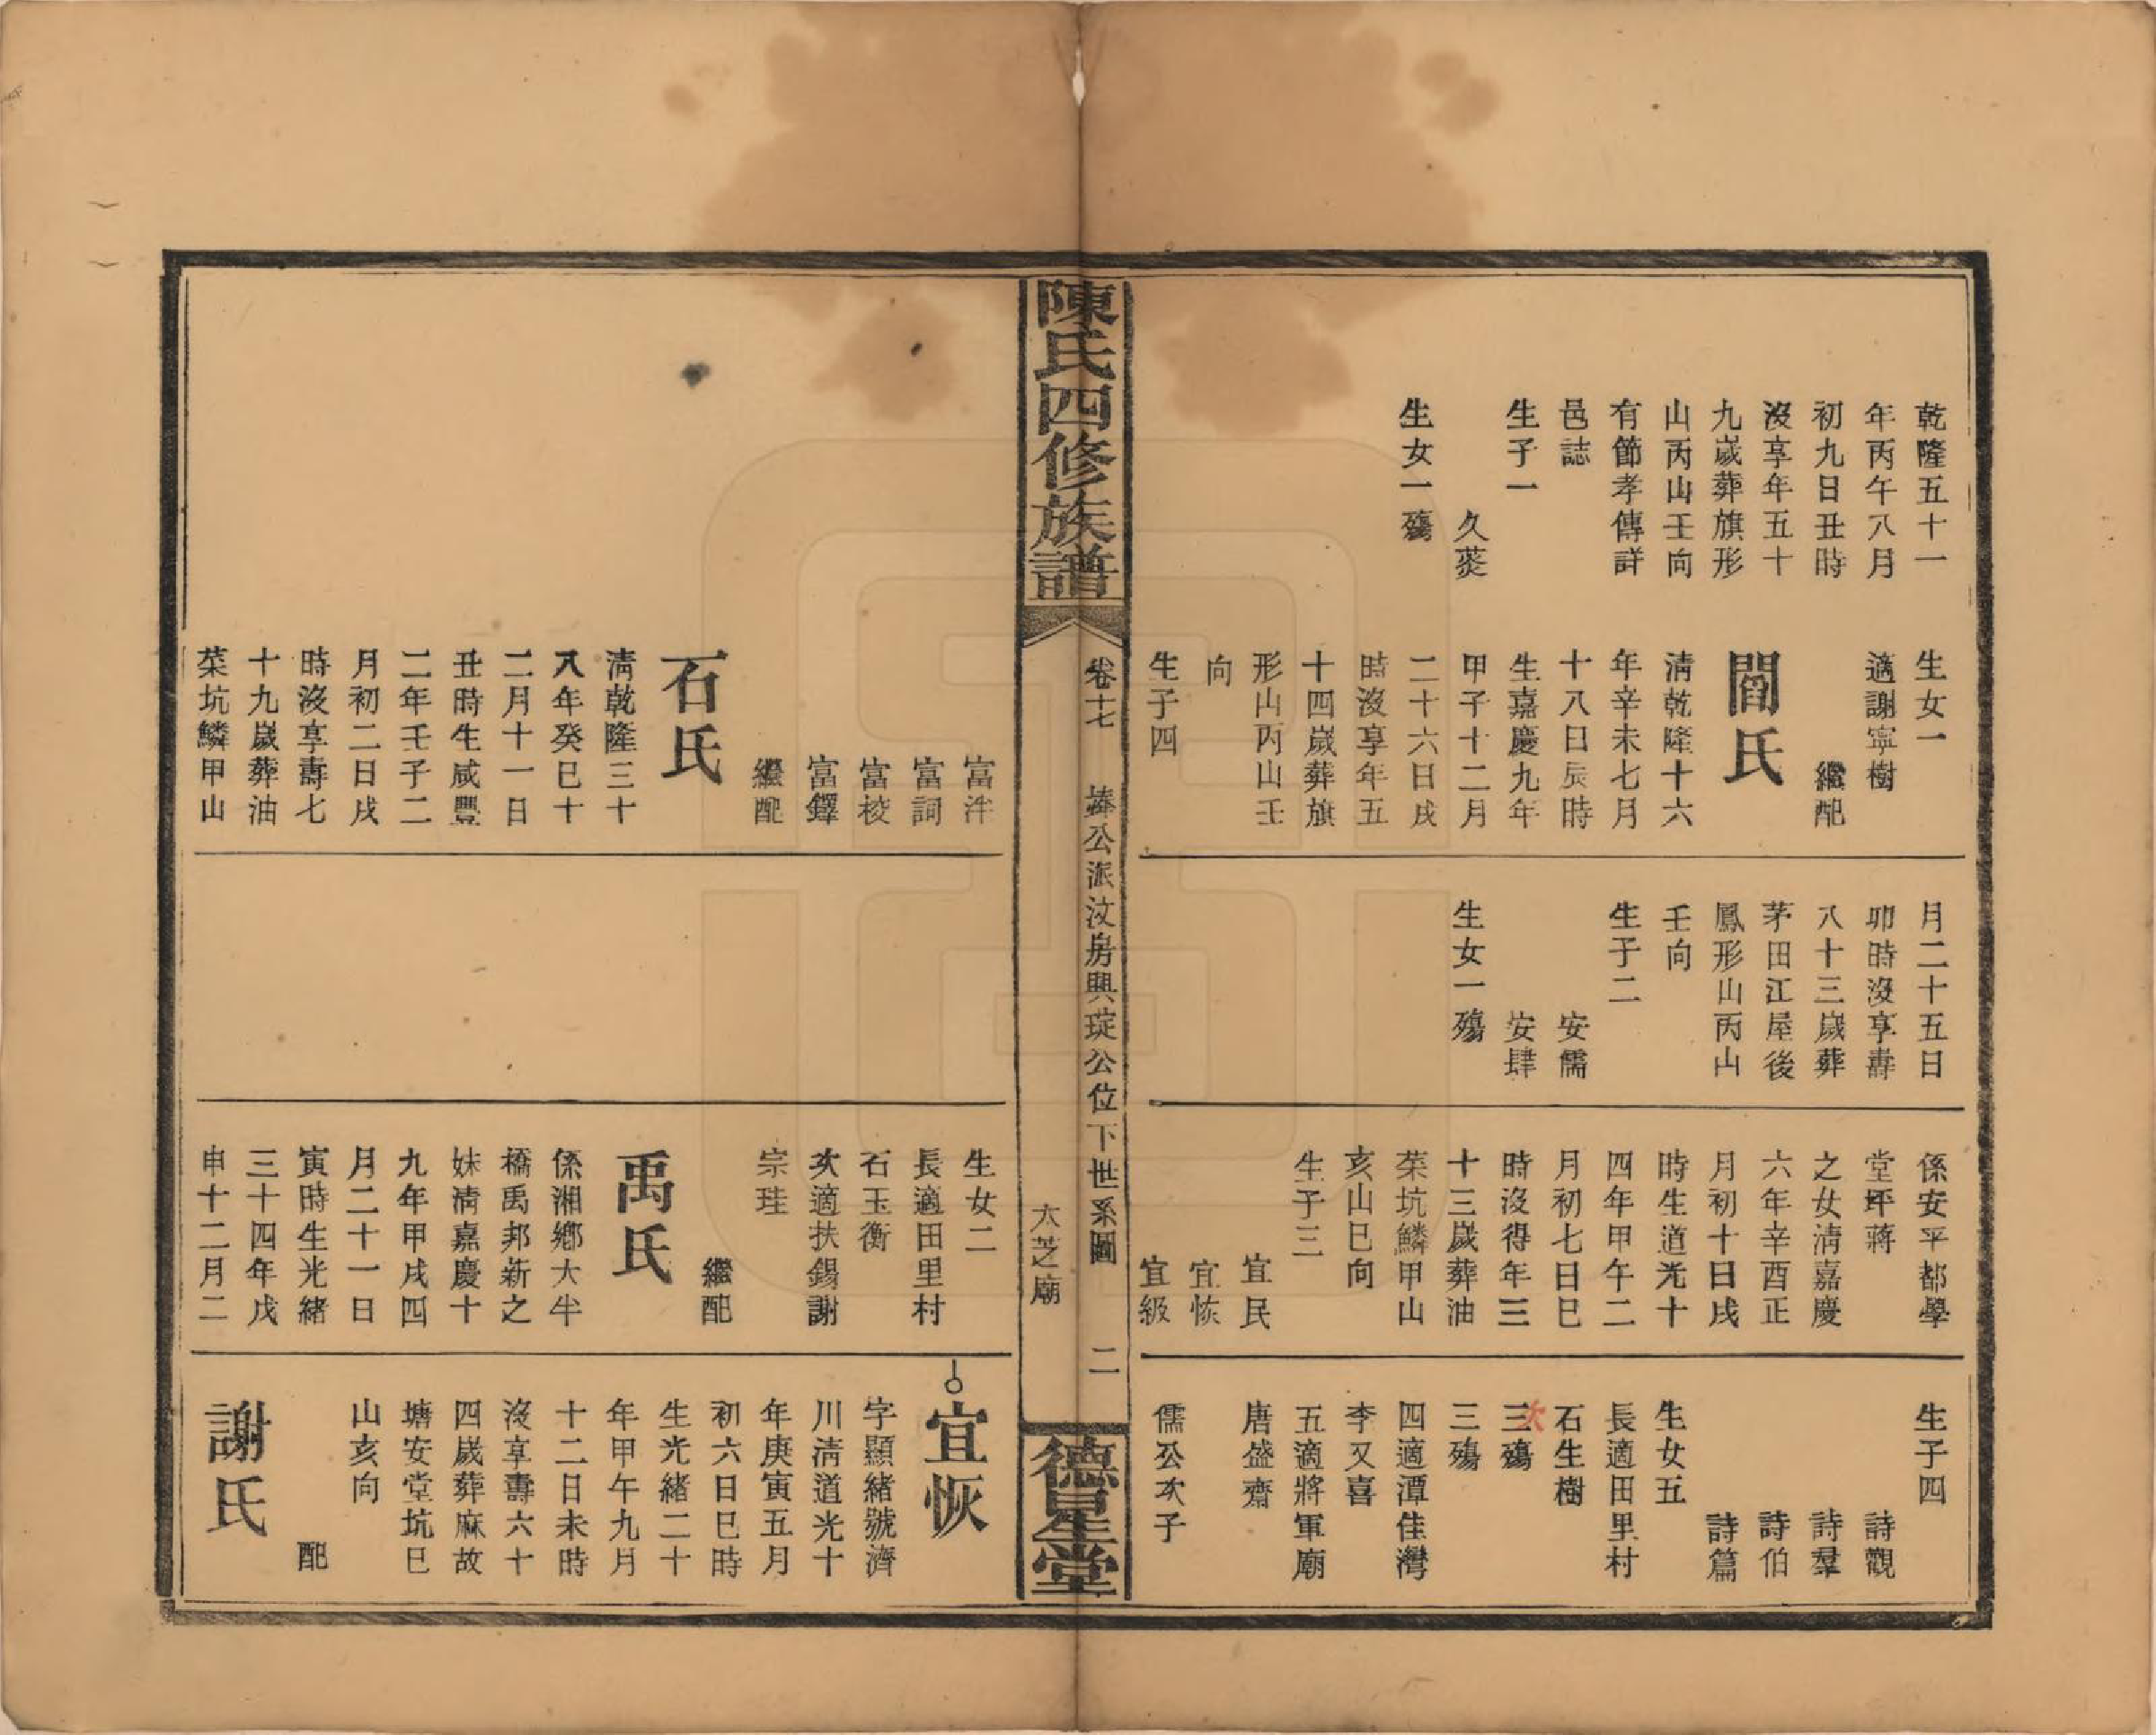 乾隆五十一
年丙午八月
初九日丑時
沒享年五十
九歲葬旗形
山丙山壬向
有節孝傳詳
邑誌
生子一
久菼
生女一殤
生女一
適謝寧樹
繼配
閻氏
淸乾隆十六
年辛未七月
十八日辰時
生嘉慶九年
甲子十二月
二十六日戌
時沒享年五
十四歲葬旗
形山丙山壬
向
生子四
月二十五日
卯時沒享壽
八十三歲葬
茅田江屋後
鳳形山丙山
壬向
生子二
安儒
安肆
生女一殤
係安平都學
堂坪蔣
之女淸嘉慶
六年辛酉正
月初十日戌
時生道光十
四年甲午二
月初七日巳
時沒得年三
十三歲葬油
菜坑鱗甲山
亥山巳向
生子三
宜民
宜恢
宜級
生子四
詩觀
詩羣
詩伯
詩篇
生女五
長適田里村
石生樹
次
三殤
三殤
四適潭佳灣
李又喜
五適將軍廟
唐盛齋
儒公次子
陳氏四修族譜
卷十七
捧公派汶房興琔公位下世系圖
二
大芝廟
德星堂
富泮
富詞
富梭
富鐸
繼配
石氏
淸乾隆三十
八年癸巳十
二月十一日
丑時生咸豐
二年壬子二
月初二日戌
時沒享壽七
十九歲葬油
菜坑鱗甲山
生女二
長適田里村
石玉衡
次適扶錫謝
宗珪
繼配
禹氏
係湘鄉大半
橋禹邦新之
妹淸嘉慶十
九年甲戌四
月二十一日
寅時生光緒
三十四年戊
申十二月二
宜恢
字顯緒號濟
川淸道光十
年庚寅五月
初六日巳時
生光緒二十
年甲午九月
十二日未時
沒享壽六十
四歲葬麻故
塘安堂坑巳
山亥向
配
謝氏